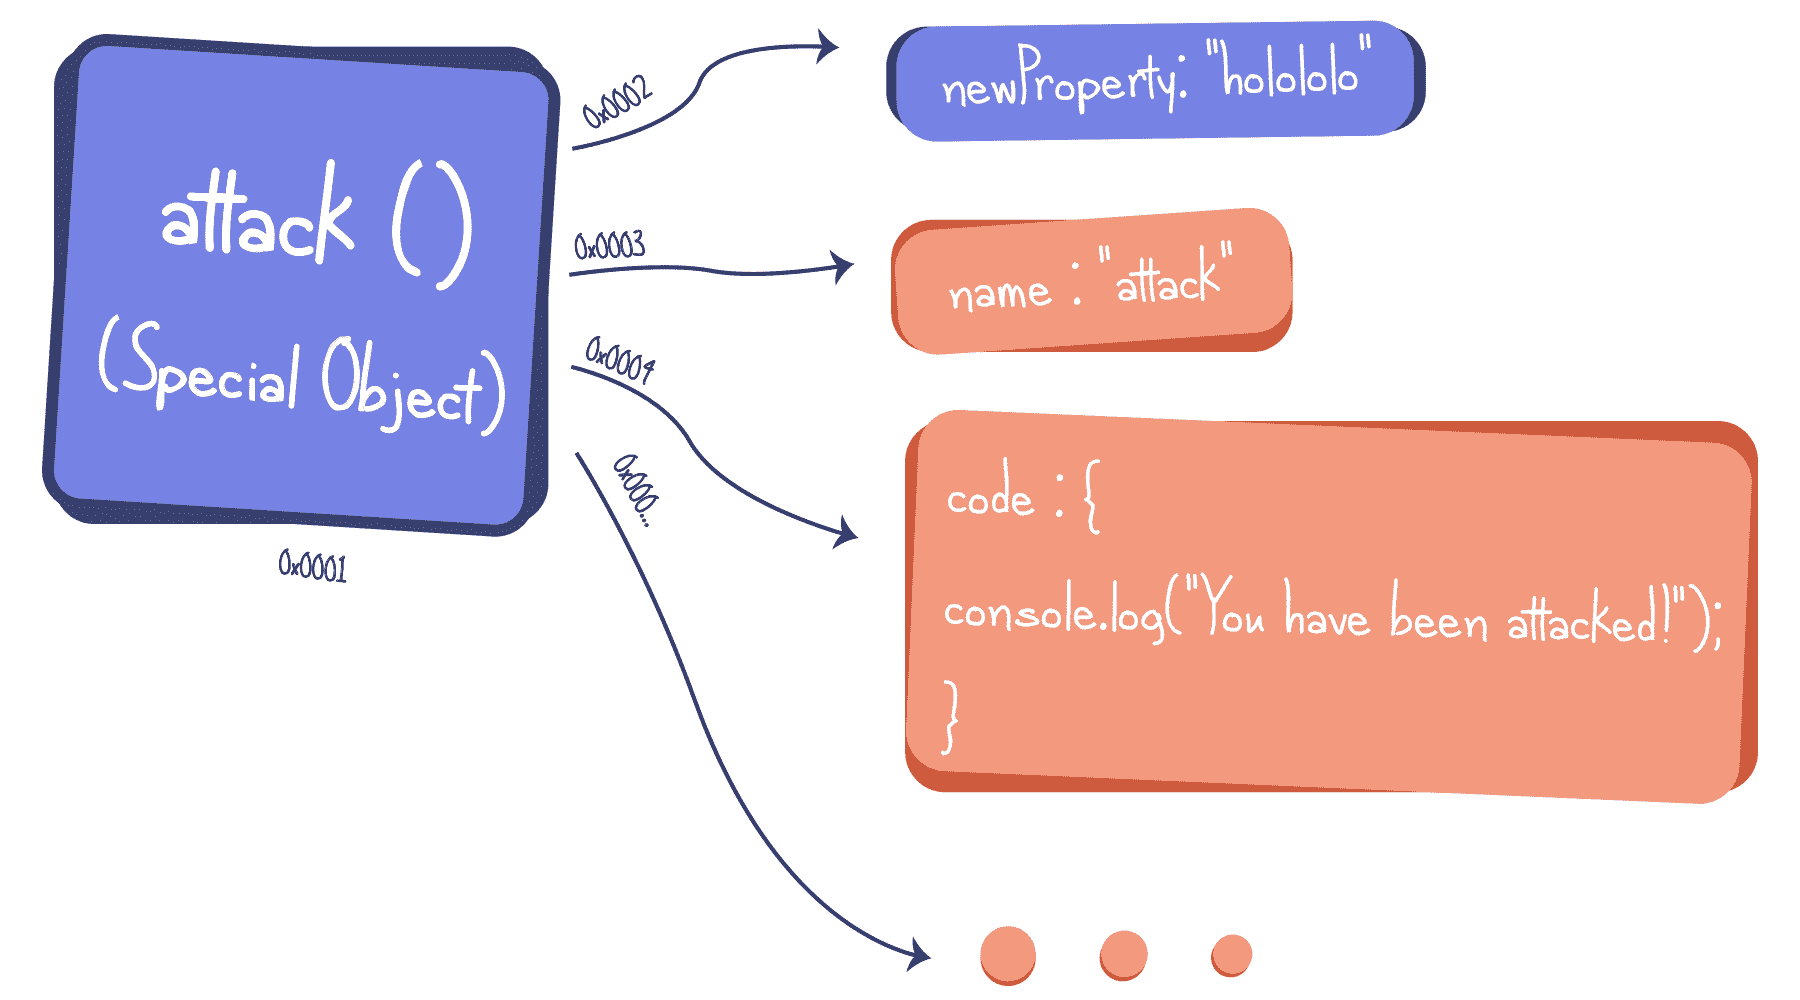 attack ()
(Special Object)
0x0001
0x0002
newProperty: "holololo"
0x0003
name : "attack"
0x0004
code : {
console.log("You have been attacked!");
}
0x000...